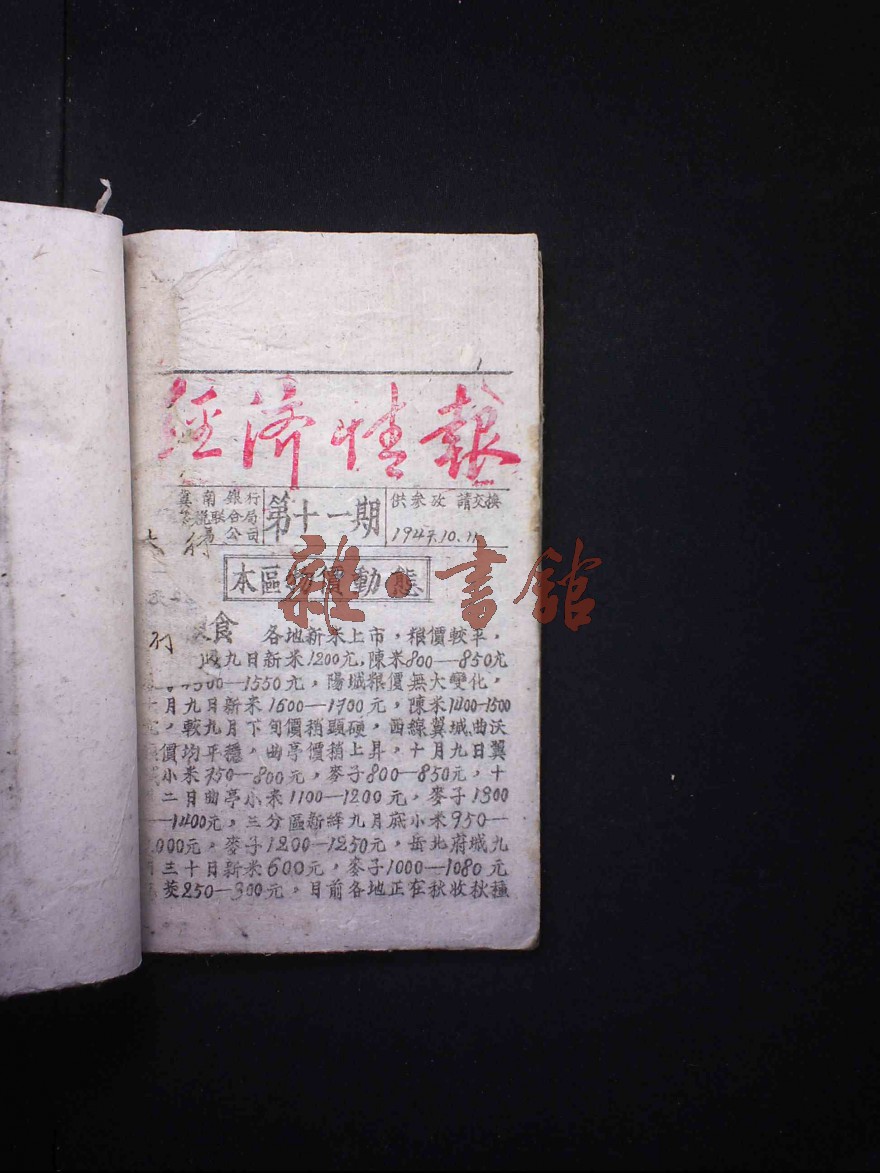 經济情報
冀南銀行
税联合局
公司
第十一期
供參攷 請交換
1947.10.11
本區物價動態
雜·書館
食 各地新米上市，粮價較平，
九日新米1200元，陳米800—850元
—1550元，陽城粮價無大變化，
月九日新米1600—1700元，陳米1400-1500
，較九月下旬價稍頭硬，西線翼城曲沃
價均平穩，曲亭價稍上昇，十月九日翼
小米750—800元，麥子800—850元，十
二日曲亭小米1100—1200元，麥子1300
—1400元，三分區新絳九月底小米950—
000元，麥子1200—1250元，岳北府城九
三十日新米600元，麥子1000—1080元
茭250—300元。目前各地正在秋收秋種